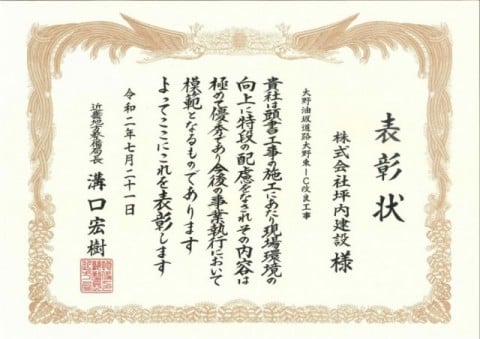 表彰状
株式会社坪内建設 様
大野油坂道路大野東IC改良工事
貴社は頭書工事の施工にあたり現場環境の
向上に特段の配慮をなされその内容は
極めて優秀であり今後の事業執行において
模範となるものであります
よってここにこれを表彰します
令和二年七月二十一日
近畿地方整備局長 溝口宏樹